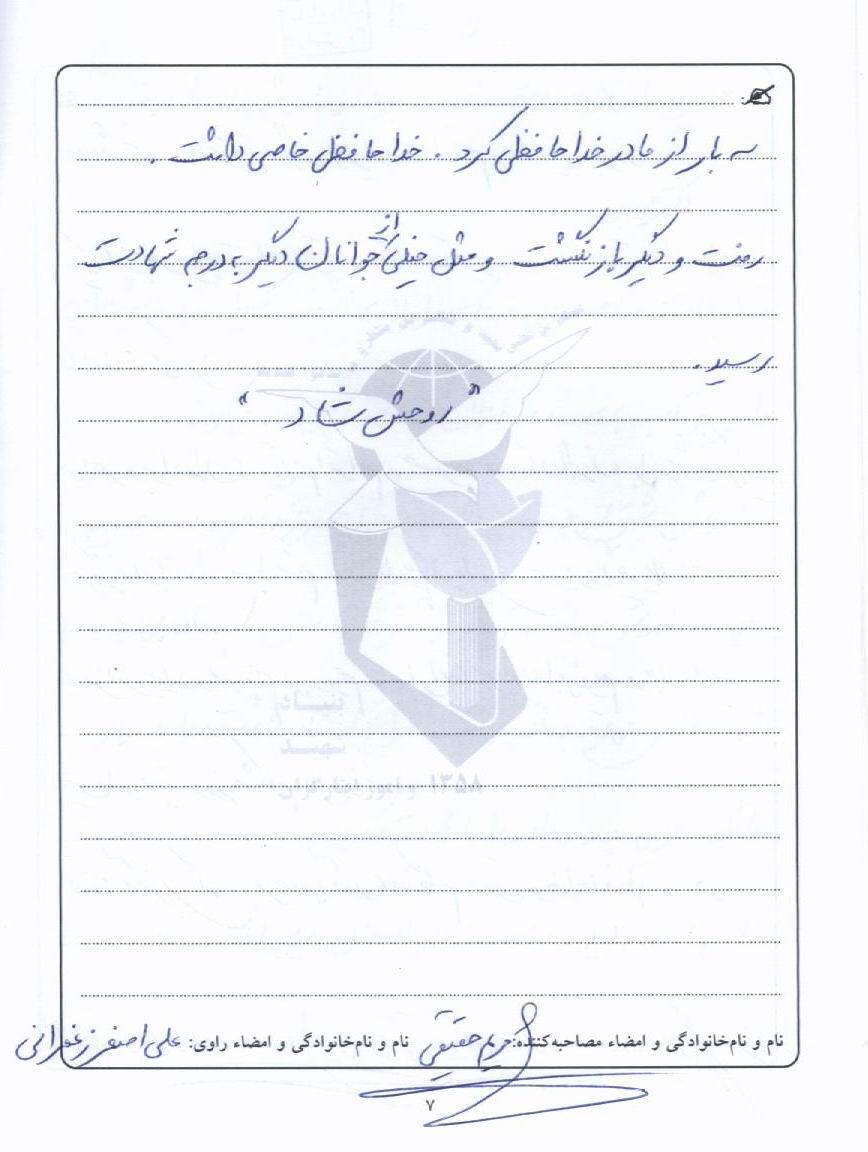 سه بار از مادر خداحافظی کرد . خداحافظی خاصی داشت .
رفت و دیگر باز نگشت و مثل خیلی از جوانان دیگر به درجه شهادت
رسید .
" روحش شاد "
بنیاد
شهید
و امور ایثارگران ۱۳۵۸
نام و نام‌خانوادگی و امضاء مصاحبه‌کننده: مریم حقیقی نام و نام‌خانوادگی و امضاء راوی: علی اصغر زعفرانی
۷